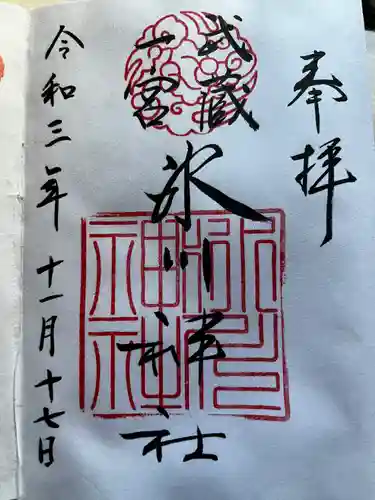 奉拝
武蔵
一宮
氷川神社
氷川
神社
令和三年十一月十七日